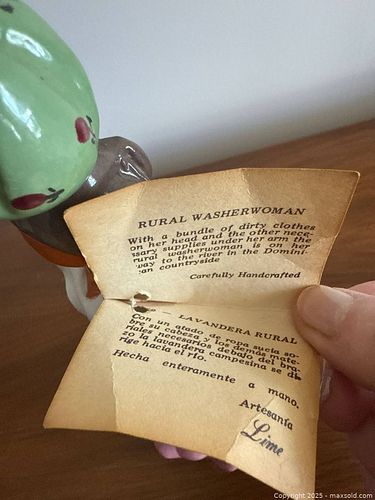 RURAL WASHERWOMAN
With a bundle of dirty clothes
on her head and the other nece-
ssary supplies under her arm the
rural washerwoman is on her
way to the river in the Domini-
can countryside
Carefully Handcrafted
LAVANDERA RURAL
Con un atado de ropa sucia so-
bre su cabeza y los demás mate-
riales necesarios debajo del bra-
zo la lavandera campesina se di-
rige hacia el río.
Hecha enteramente a mano.
Artesanía
Lime
Copyright © 2025 - maxsold.com